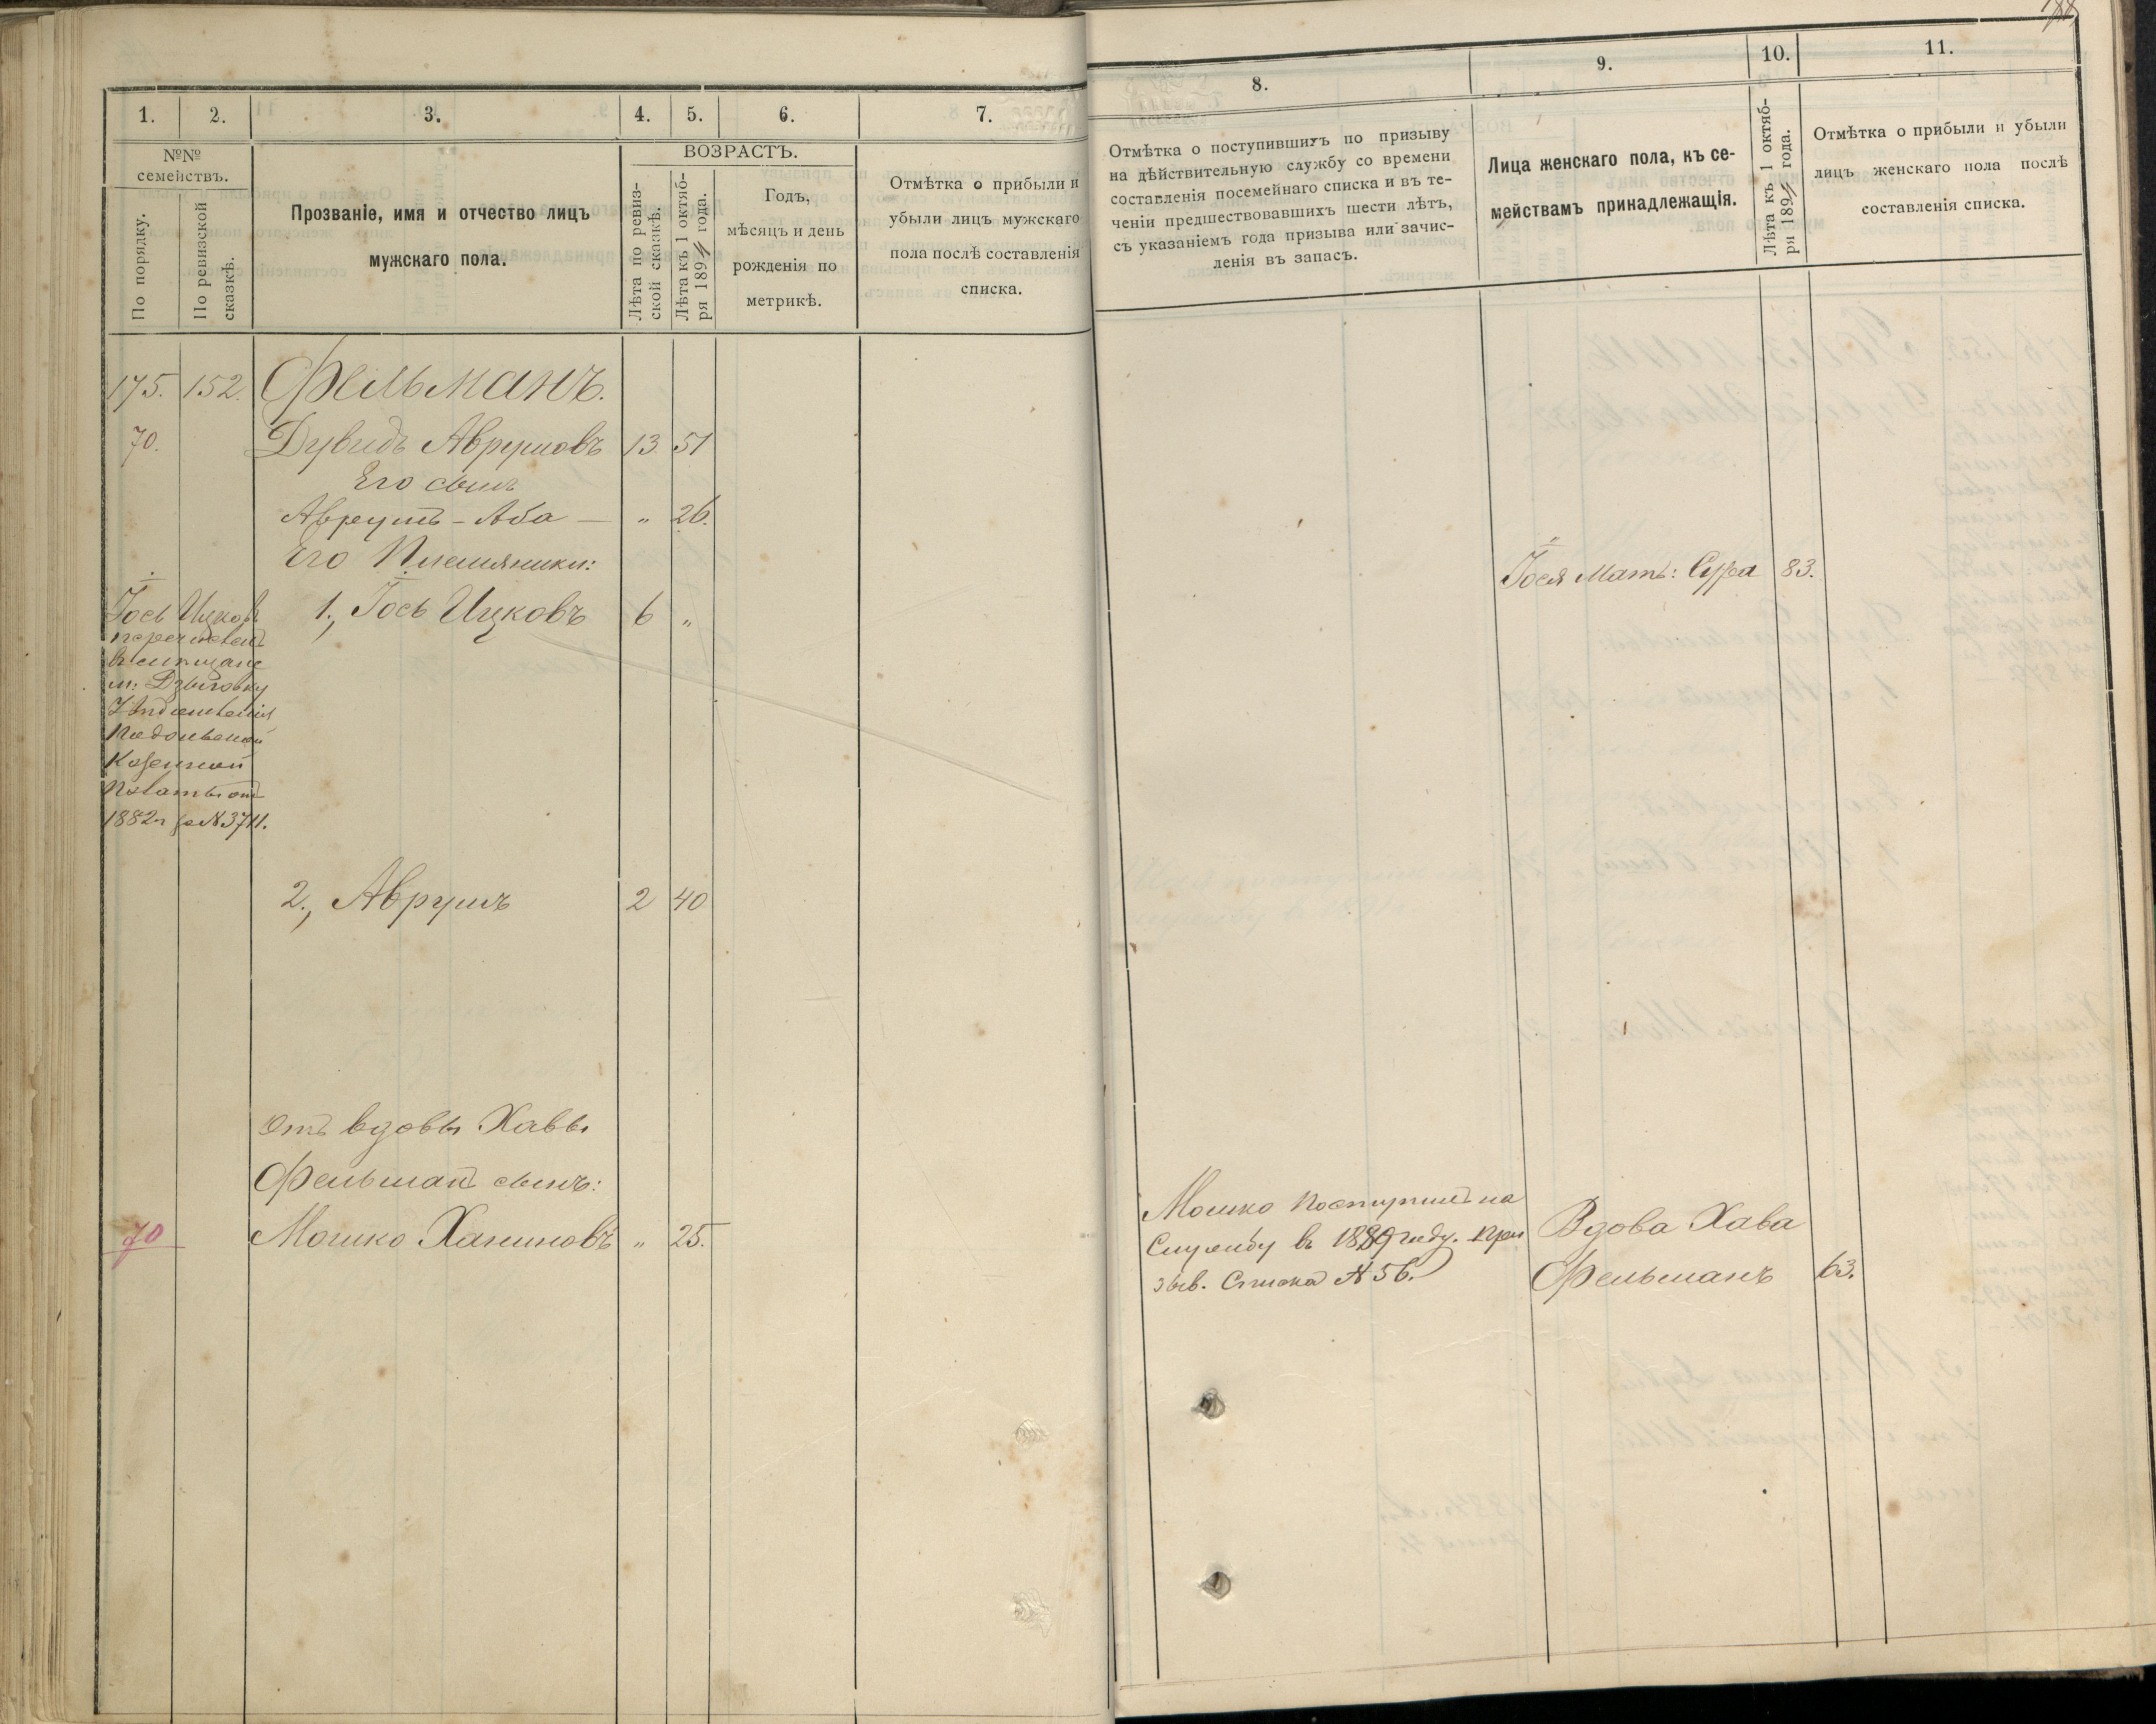 1. 2. 3. 4. 5. 6. 7.
№№ семействъ.
По порядку.
По ревизской сказкѣ.
Прозваніе, имя и отчество лицъ
мужскаго пола.
ВОЗРАСТЪ.
Лѣта по ревиз-
ской сказкѣ.
Лѣта къ 1 октяб-
ря 189 года.
Годъ,
мѣсяцъ и день
рожденія по
метрикѣ.
Отмѣтка о прибыли и
убыли лицъ мужскаго
пола послѣ составленія
списка.
175. 152. Фельманъ.
70. Дувидъ Аврумовъ 13 51
Его сынъ
Аврумъ - Аба — " 26.
Его Племяники:
1., Іось Ицковъ 6 "
Іось Ицковъ
перечисленъ
въ мещане
м: Дзыговку
Подольской
Казенной
Палаты отъ
1882 г за № 3711.
2., Аврумъ 2 40
Отъ вдовы Хавы
Фельманъ сынъ:
70 Мошко Ханиновъ " 25.
8. 9. 10. 11.
Отмѣтка о поступившихъ по призыву
на дѣйствительную службу со времени
составленія посемейнаго списка и въ те-
ченіи предшествовавшихъ шести лѣтъ,
съ указаніемъ года призыва или зачис-
ленія въ запасъ.
Лица женскаго пола, къ се-
мействамъ принадлежащія.
Лѣта къ 1 октяб-
ря 189 года.
Отмѣтка о прибыли и убыли
лицъ женскаго пола послѣ
составленія списка.
Іося Мать: Сура 83.
Мошко поступилъ на
Службу въ 1889 году. при
зыв. Списка № 56.
Вдова Хава
Фельманъ 63.